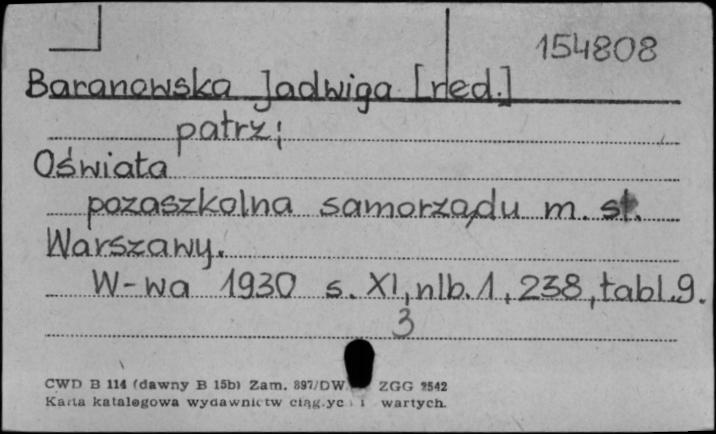 154808
Baranowska Jadwiga [red.]
patrz:
Oświata
pozaszkolna samorządu m. st.
Warszawy.
W-wa 1930 s. XI, nlb. 1, 238, tabl. 9.
3
CWD B 114 (dawny B 15b) Zam. 897/DW. ZGG 2542
Karta katalogowa wydawnictw i wartych.